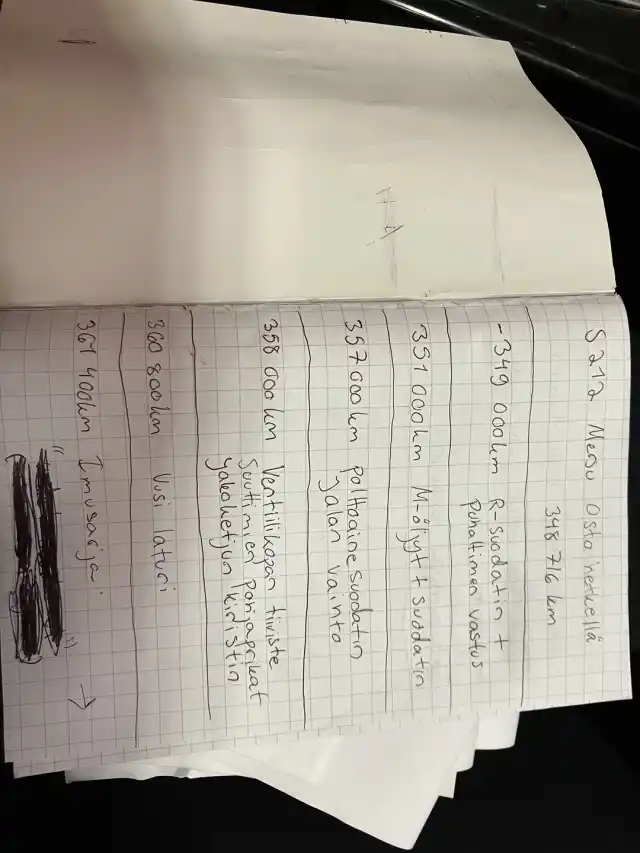 S212 Mersu Osto hetkellä
348 716 km
-349 000km R-Suodatin +
Puhaltimen vastus
351 000km M-öljyt + suodatin
357 000km polttoainesuodatin
Jalan vaihto
358 000km Ventiilikopan tiiviste
Suuttimien pohjaprikat
yakoketjun kiristin
360 800km Uusi laturi
361 400km Imusarja
→